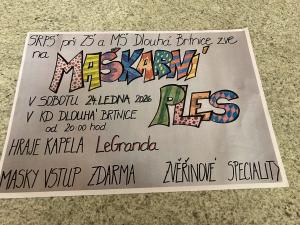 SRPŠ při ZŠ a MŠ Dlouhá Brtnice zve
na MAŠKARNÍ
PLES
V SOBOTU 24 LEDNA 2026
V KD DLOUHÁ BRTNICE
od 20:00 hod.
HRAJE KAPELA LeGranda
MASKY VSTUP ZDARMA ZVĚŘINOVÉ SPECIALITY